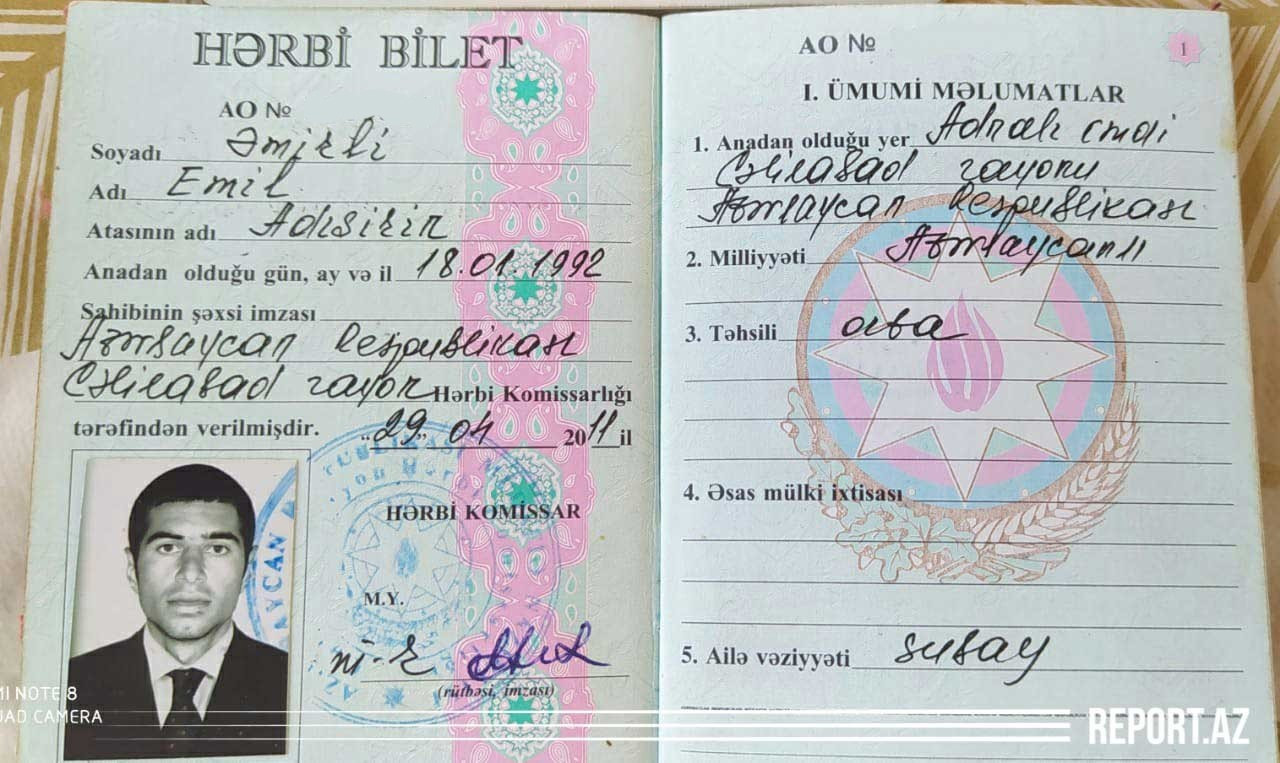 HƏRBİ BİLET
AO №
Soyadı Əmirli
Adı Emil
Atasının adı Adışirin
Anadan olduğu gün, ay və il 18.01.1992
Sahibinin şəxsi imzası
Azərbaycan Respublikası
Cəlilabad rayon Hərbi Komissarlığı
tərəfindən verilmişdir. "29" 04 2011 il
HƏRBİ KOMİSSAR
M.Y.
(rütbəsi, imzası)
AYCAN
MI NOTE 8
UAD CAMERA
AO №
1
I. ÜMUMİ MƏLUMATLAR
1. Anadan olduğu yer
Cəlilabad rayonu
Azərbaycan Respublikası
2. Milliyyəti Azərbaycanlı
3. Təhsili orta
4. Əsas mülki ixtisası
5. Ailə vəziyyəti subay
REPORT.AZ